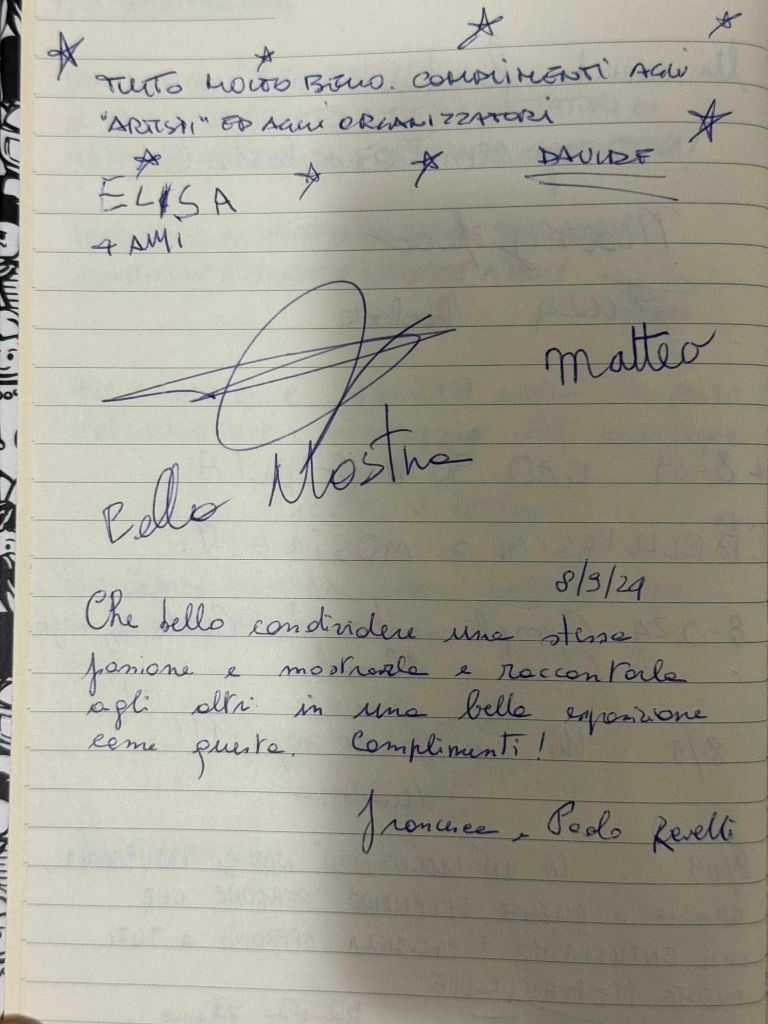 TUTTO MOLTO BELLO. COMPLIMENTI AGLI
"ARTISTI" ED AGLI ORGANIZZATORI
DAVIDE
ELISA
4 ANNI
Matteo
Bella Mostra
8/9/24
Che bello condividere una stessa
passione e mostrarla e raccontarla
agli altri in una bella esposizione
come questa. Complimenti!
Francesca e Paolo Revelli